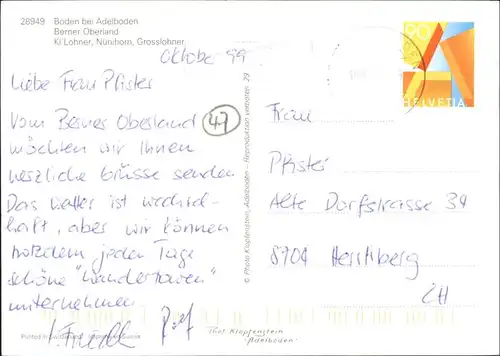 28949 Boden bei Adelboden
Berner Oberland
Kl Lohner, Nünihorn, Grosslohner
90
HELVETIA
Oktober 99
Liebe Frau Pfister
47
Vom Berner Oberland
möchten wir Ihnen
herzliche Grüsse senden
Das Wetter ist wechsel-
haft, aber wir können
trotzdem jeden Tage
schöne "Wandertouren"
unternehmen
Frau
Pfister
Alte Dorfstrasse 39
8704 Herrliberg
CH
© Photo Klopfenstein, Adelboden - Reproduktion verboten 29
Printed in Switzerland
Phot Klopfenstein
Adelboden